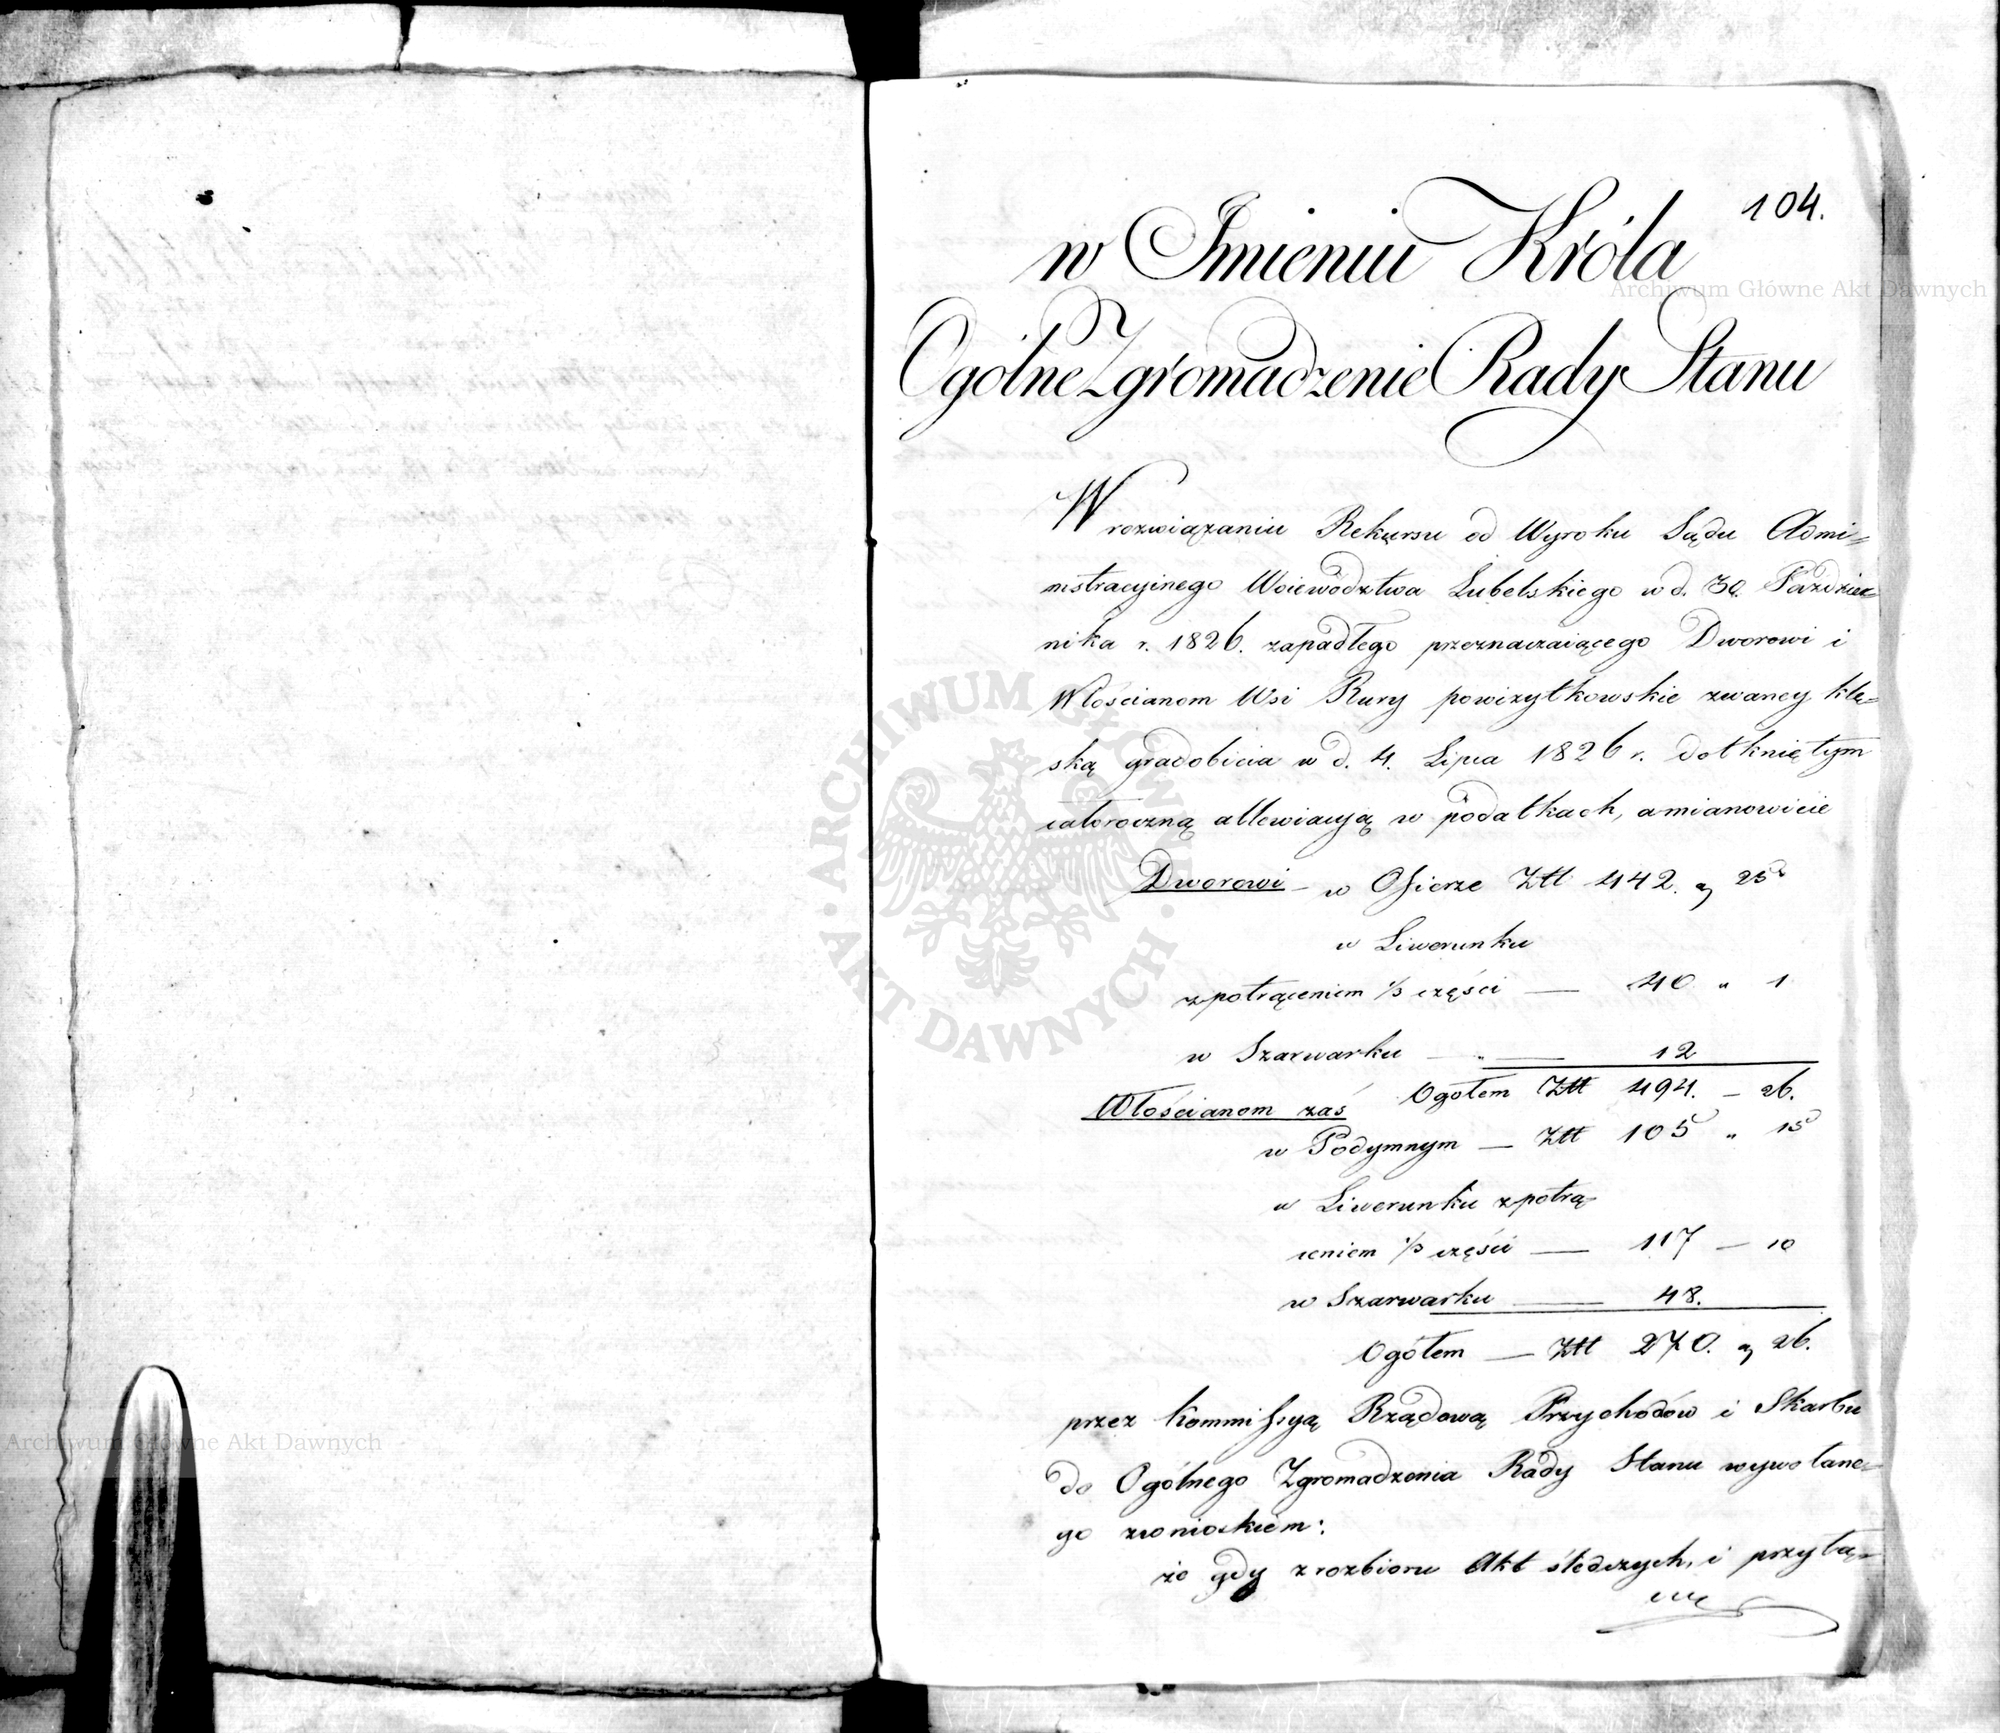 104.
w Imieniu Króla
Ogólne Zgromadzenie Rady Stanu
W rozwiązaniu Rekursu od Wyroku Sądu Admi=
nistracyinego Woiewództwa Lubelskiego w d. 30. Paździer=
nika r. 1826. zapadłego przeznaczaiącego Dworowi i
Włościanom Wsi Rury powizytkowskie zwaney klę=
ską gradobicia w d. 4. Lipca 1826 r. dotkniętym
całoroczną allewiacyą w podatkach, a mianowicie
Dworowi – w Ofierze Złł 442. „ 25
w Liwerunku
z potrąceniem 1/3 części — 40 „ 1
w Szarwarku — „ — 12
Ogółem Złł 494. – 26.
Włościanom zaś
w Podymnym — Złł 105 „ 15
w Liwerunku z potrą=
ceniem 1/3 części — 117 — 10
w Szarwarku — 48.
Ogółem — Złł 270. „ 26.
przez Kommissyą Rządową Przychodów i Skarbu
do Ogólnego Zgromadzenia Rady Stanu wywołane=
go z wnioskiem:
że gdy z rozbioru Akt śledczych, i przyłą=
Archiwum Główne Akt Dawnych
ARCHIWUM GŁÓWNE · AKT DAWNYCH ·
Archiwum Główne Akt Dawnych